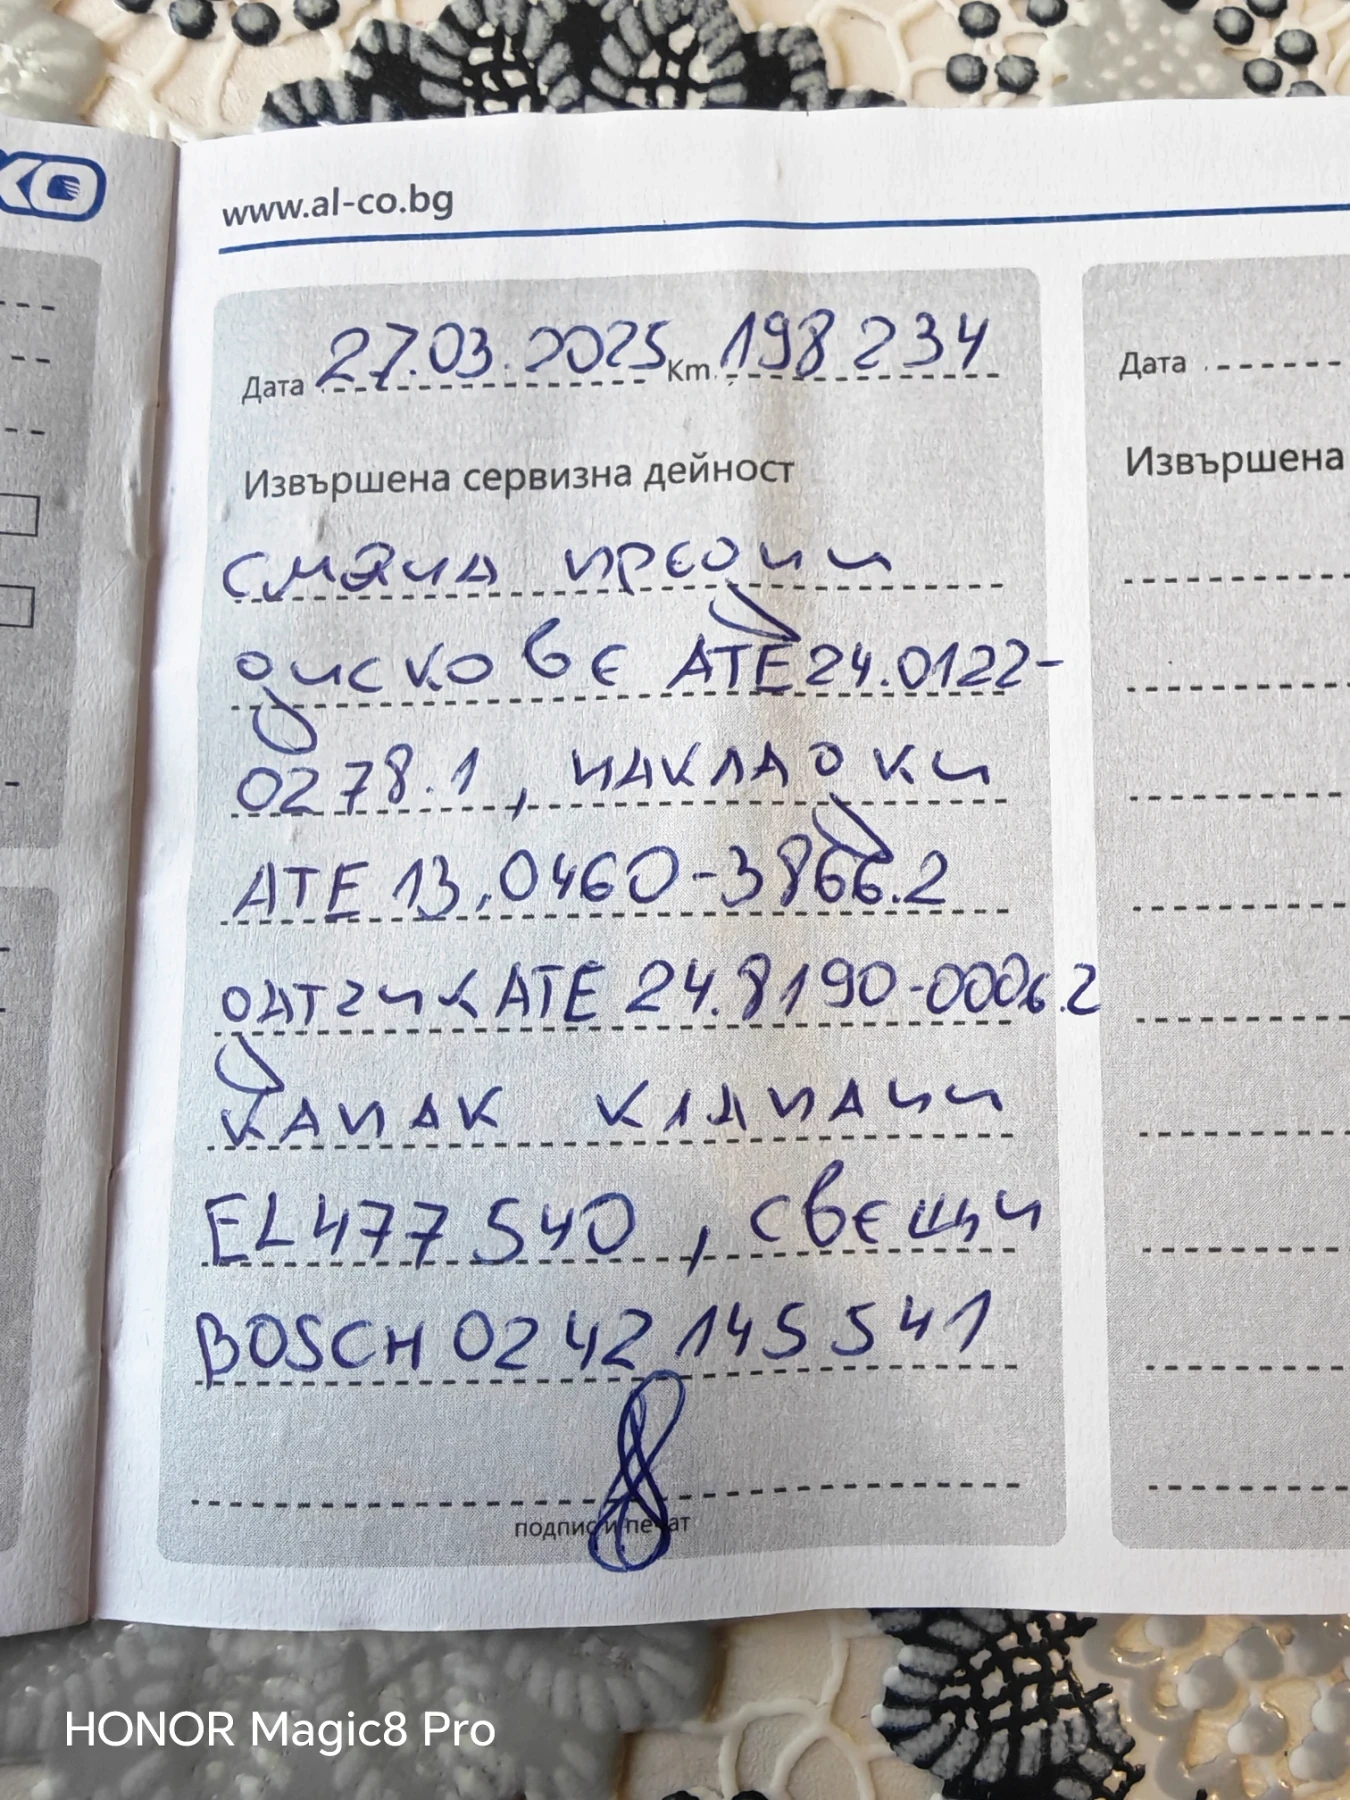 КО
www.al-co.bg
Дата 27.03.2025 Km. 198 234
Извършена сервизна дейност
смяна предни
дискове ATE 24.0122-
0278.1, накладки
ATE 13.0460-3866.2
датчик ATE 24.8190-0006.2
капак клапани
EL477540, свещи
BOSCH 0242 145 541
подпис и печат
Дата
Извършена
HONOR Magic8 Pro